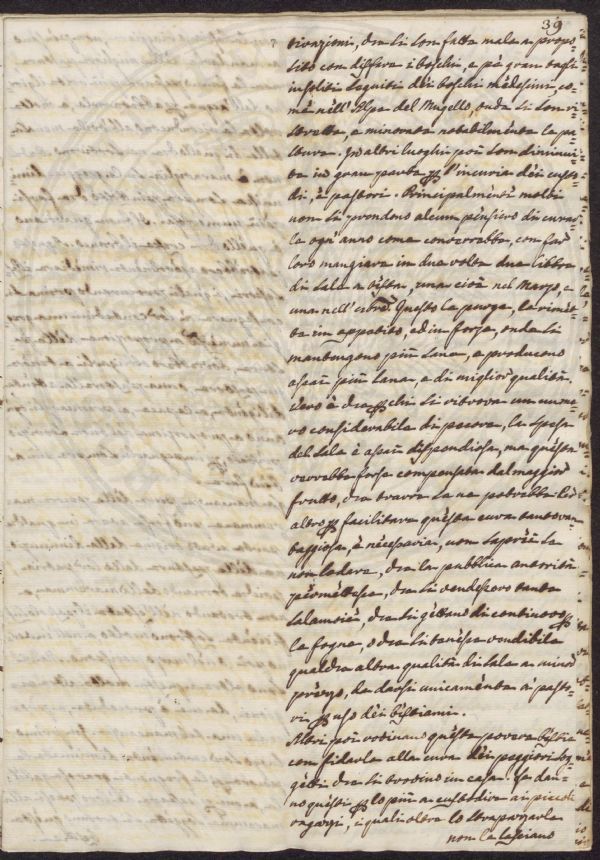 39
vioazioni, che si son fatte male a propo-
sito con disfare i boschi, e pe' gran tagli
insoliti seguiti dei boschi medesimi, co-
me nell'Alpe del Mugello, onde si son ri-
strette, e minorate notabilmente le pa-
sture. In altri luoghi poi son diminui-
te in gran parte per l'incuria dei custo-
di, e pastori. Principalmente molti
non si prendono alcun pensiero di curar-
le ogn'anno come converrebbe, con far
loro mangiare in due volte due libbre
di sale a testa, una cioè nel Marzo, e
una nell' Questo le purga, le rimet-
te in appetito, ed in forze, onde si
mantengono più sane, e producono
assai più lana, e di miglior qualità.
Vero è che per chi si ritrova un nume-
ro considerabile di pecore, la spesa
del sale è assai dispendiosa, ma questa
verrebbe forse compensata dal maggior
frutto, che trarre se ne potrebbe. Per
altro per facilitare questa cura tanto van-
taggiosa, e necessaria, non saprei se
non lodare, che la pubblica autorità
permettesse, che si vendessero tante
salamoie, che si gettano di continuo per
le fogne, o che si tenesse vendibile
qualche altra qualità di sale a minor
prezzo, da darsi unicamente a' pasto-
ri per uso dei bestiami.
Altri poi rovinano queste povere bestie
con fidarle alla cura dei peggiori sog-
getti che si trovino in casa. Se dan-
no questi per lo più a custodire ai piccoli
ragazzi, i quali oltre lo strapazzarle
non le lasciano